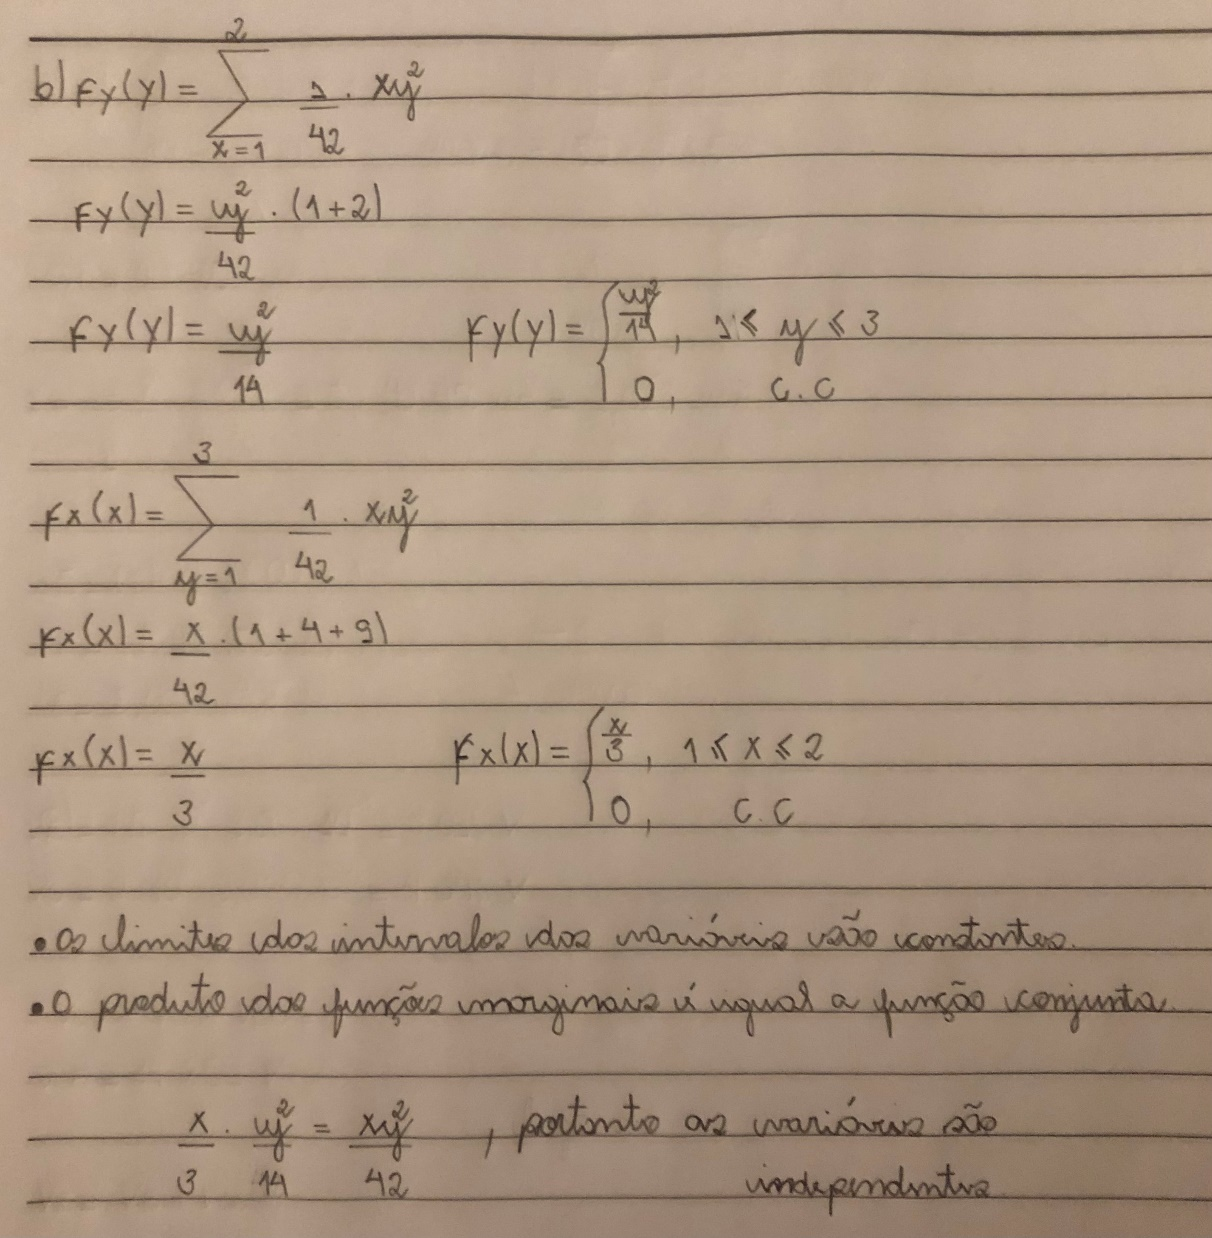 b) Fy(y) = 2∑x=1 1/42 · xy²
Fy(y) = y²/42 · (1+2)
Fy(y) = y²/14    Fy(y) = { y²/14, 1 ≤ y ≤ 3
0, c.c
Fx(x) = 3∑y=1 1/42 · xy²
Fx(x) = x/42 · (1+4+9)
Fx(x) = x/3    Fx(x) = { x/3, 1 ≤ x ≤ 2
0, c.c
• Os limites dos intervalos das variáveis são constantes.
• O produto das funções marginais é igual a função conjunta.
x/3 · y²/14 = xy²/42 , portanto as variáveis são
independentes.